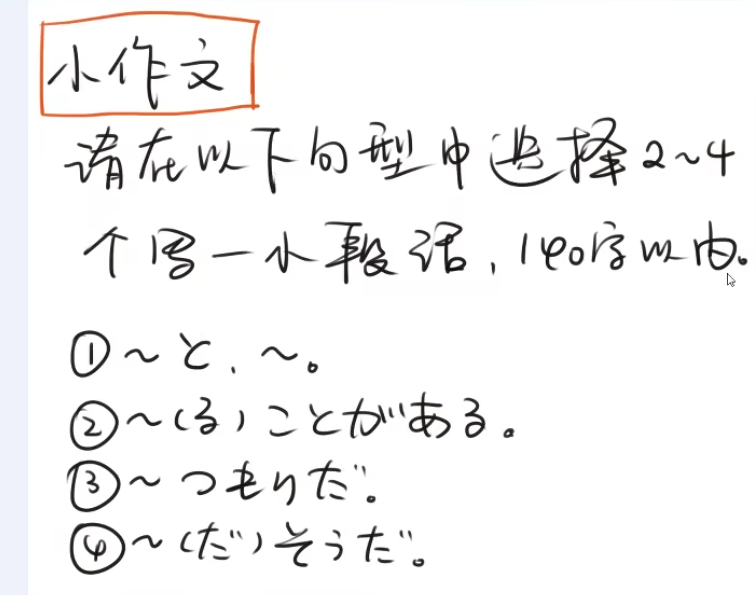 小作文
请在以下句型中选择2~4
个写一小段话,140字以内。
①~と、~。
②~(る)ことがある。
③~つもりだ。
④~(だ)そうだ。